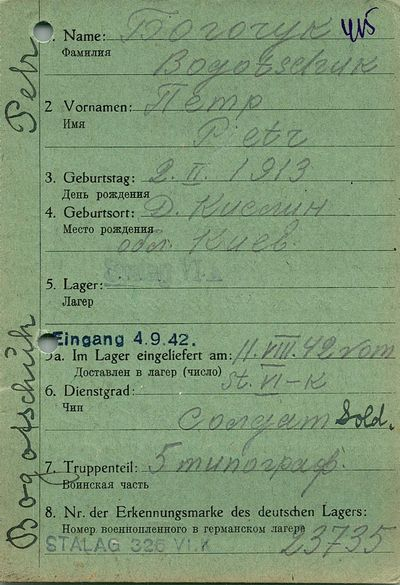 1. Name: Богочук
Фамилия
Bogotschuk
2 Vornamen: Петр
Имя
Pietr
3. Geburtstag: 2. II. 1913
День рождения
4. Geburtsort: Д. Кислин
Место рождения
обл. Киев.
5. Lager:
Лагер
Eingang 4.9.42.
5a. Im Lager eingeliefert am: 11. VIII. 42 vom
Доставлен в лагер (число)
St. VI-K
6. Dienstgrad:
Чин
Солдат Sold.
7. Truppenteil: 5 типограф.
Воинская часть
8. Nr. der Erkennungsmarke des deutschen Lagers:
Номер военнопленного в германском лагере
23735
STALAG 326 VI.K
Bogotschuk Petr